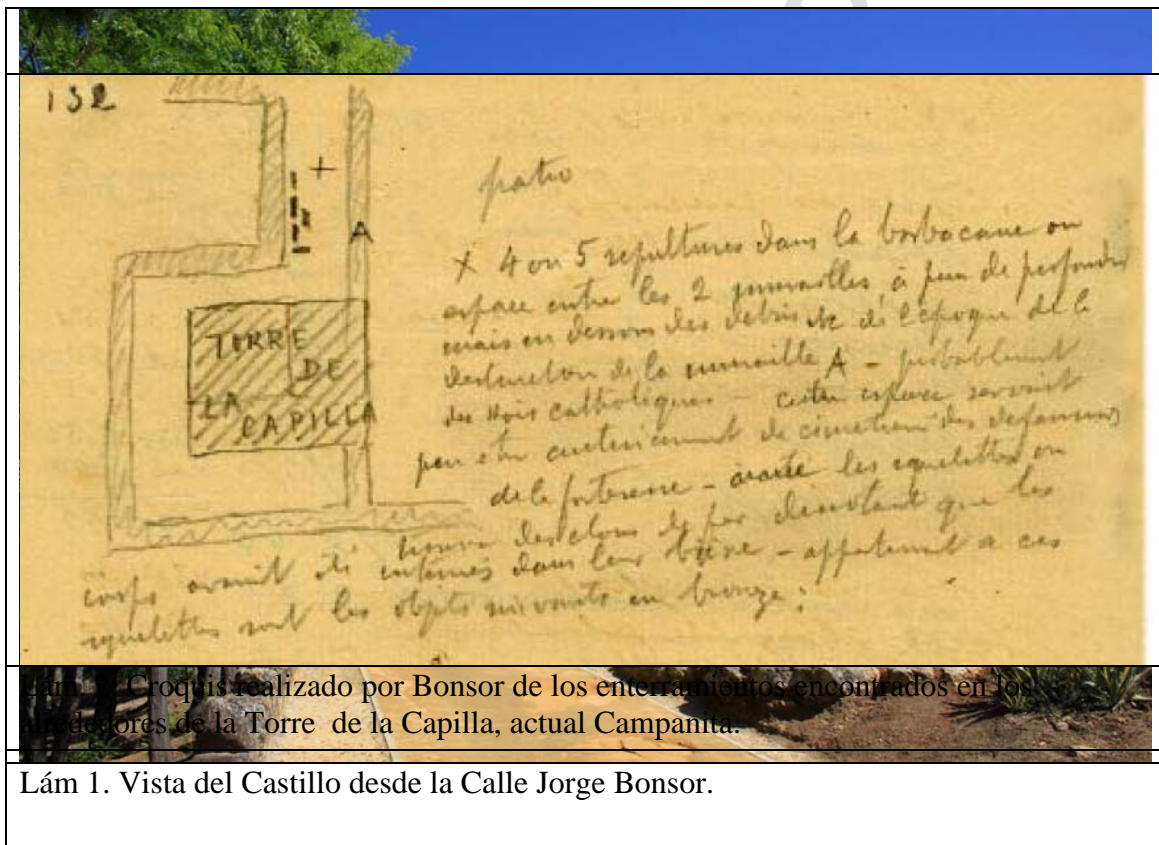 132
patio
+
A
TORRE
DE
LA
CAPILLA
+ 4 ou 5 sepultures dans la barbacane ou
espace entre les 2 murailles, à peu de profondeur
mais en dessous des debris de l'époque de la
destruction de la muraille A - probablement
des Rois catholiques - cette espace servait
peut etre anciennement de cimetiere des defenseurs
de la forteresse - les squelettes on
trouve des clous de fer denotant que les
corps avaient été enterrés dans leur bière - appartenant a ces
squelettes sont les objets suivants en bronze :
Lám. Croquis realizado por Bonsor de los enterramientos encontrados en los
alrededores de la Torre de la Capilla, actual Campanita.
Lám 1. Vista del Castillo desde la Calle Jorge Bonsor.